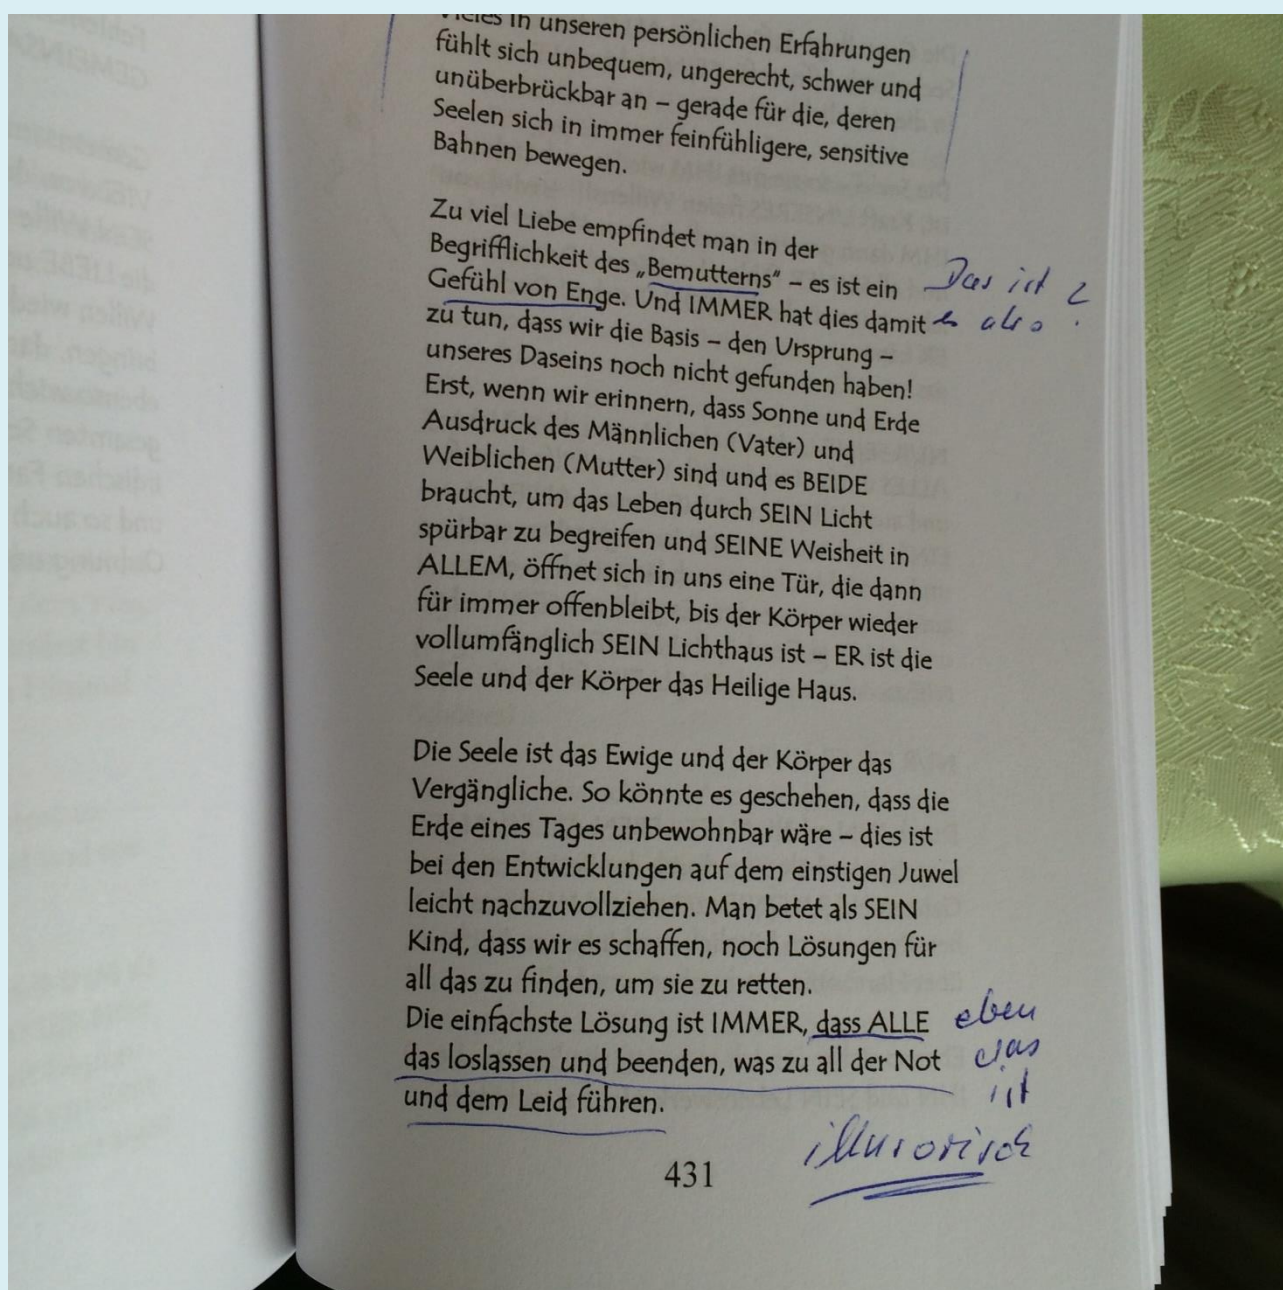 Vieles in unseren persönlichen Erfahrungen
fühlt sich unbequem, ungerecht, schwer und
unüberbrückbar an – gerade für die, deren
Seelen sich in immer feinfühligere, sensitive
Bahnen bewegen.
Zu viel Liebe empfindet man in der
Begrifflichkeit des „Bemutterns“ – es ist ein
Gefühl von Enge. Und IMMER hat dies damit
zu tun, dass wir die Basis – den Ursprung –
unseres Daseins noch nicht gefunden haben!
Erst, wenn wir erinnern, dass Sonne und Erde
Ausdruck des Männlichen (Vater) und
Weiblichen (Mutter) sind und es BEIDE
braucht, um das Leben durch SEIN Licht
spürbar zu begreifen und SEINE Weisheit in
ALLEM, öffnet sich in uns eine Tür, die dann
für immer offenbleibt, bis der Körper wieder
vollumfänglich SEIN Lichthaus ist – ER ist die
Seele und der Körper das Heilige Haus.
Die Seele ist das Ewige und der Körper das
Vergängliche. So könnte es geschehen, dass die
Erde eines Tages unbewohnbar wäre – dies ist
bei den Entwicklungen auf dem einstigen Juwel
leicht nachzuvollziehen. Man betet als SEIN
Kind, dass wir es schaffen, noch Lösungen für
all das zu finden, um sie zu retten.
Die einfachste Lösung ist IMMER, dass ALLE
das loslassen und beenden, was zu all der Not
und dem Leid führen.
431
Das ist
es also ?
eben
das
ist
illusorisch